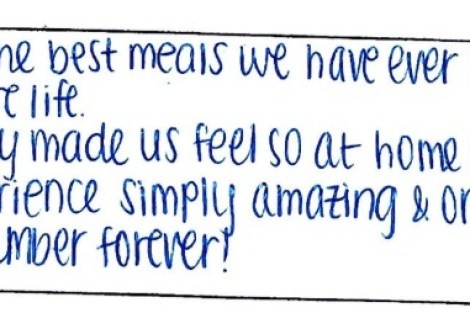 ne best meals we have ever
e life.
y made us feel so at home
rience simply amazing & on
mber forever!